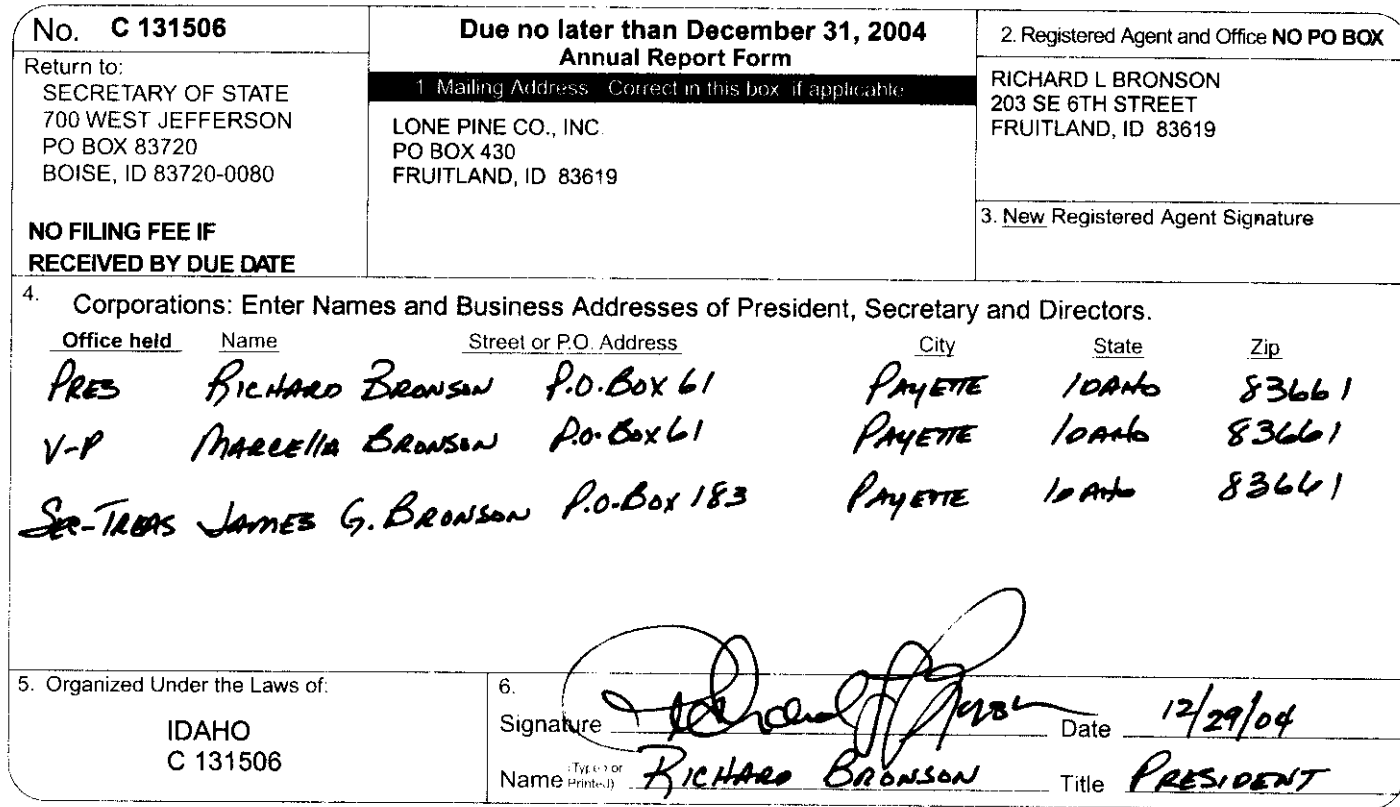 No. C 131506
Return to:
SECRETARY OF STATE
700 WEST JEFFERSON
PO BOX 83720
BOISE, ID 83720-0080
NO FILING FEE IF
RECEIVED BY DUE DATE
Due no later than December 31, 2004
Annual Report Form
1 Mailing Address Correct in this box if applicable
LONE PINE CO., INC.
PO BOX 430
FRUITLAND, ID 83619
2. Registered Agent and Office NO PO BOX
RICHARD L BRONSON
203 SE 6TH STREET
FRUITLAND, ID 83619
3. New Registered Agent Signature
4. Corporations: Enter Names and Business Addresses of President, Secretary and Directors.
Office held Name Street or P.O. Address City State Zip
PRES RICHARD BRONSON P.O. BOX 61 PAYETTE IDAHO 83661
V-P MARCELLA BRONSON P.O. BOX 61 PAYETTE IDAHO 83661
SEC-TREAS JAMES G. BRONSON P.O. BOX 183 PAYETTE IDAHO 83661
5. Organized Under the Laws of:
IDAHO
C 131506
6.
Signature Date 12/29/04
Name (Typed or Printed) RICHARD BRONSON Title PRESIDENT